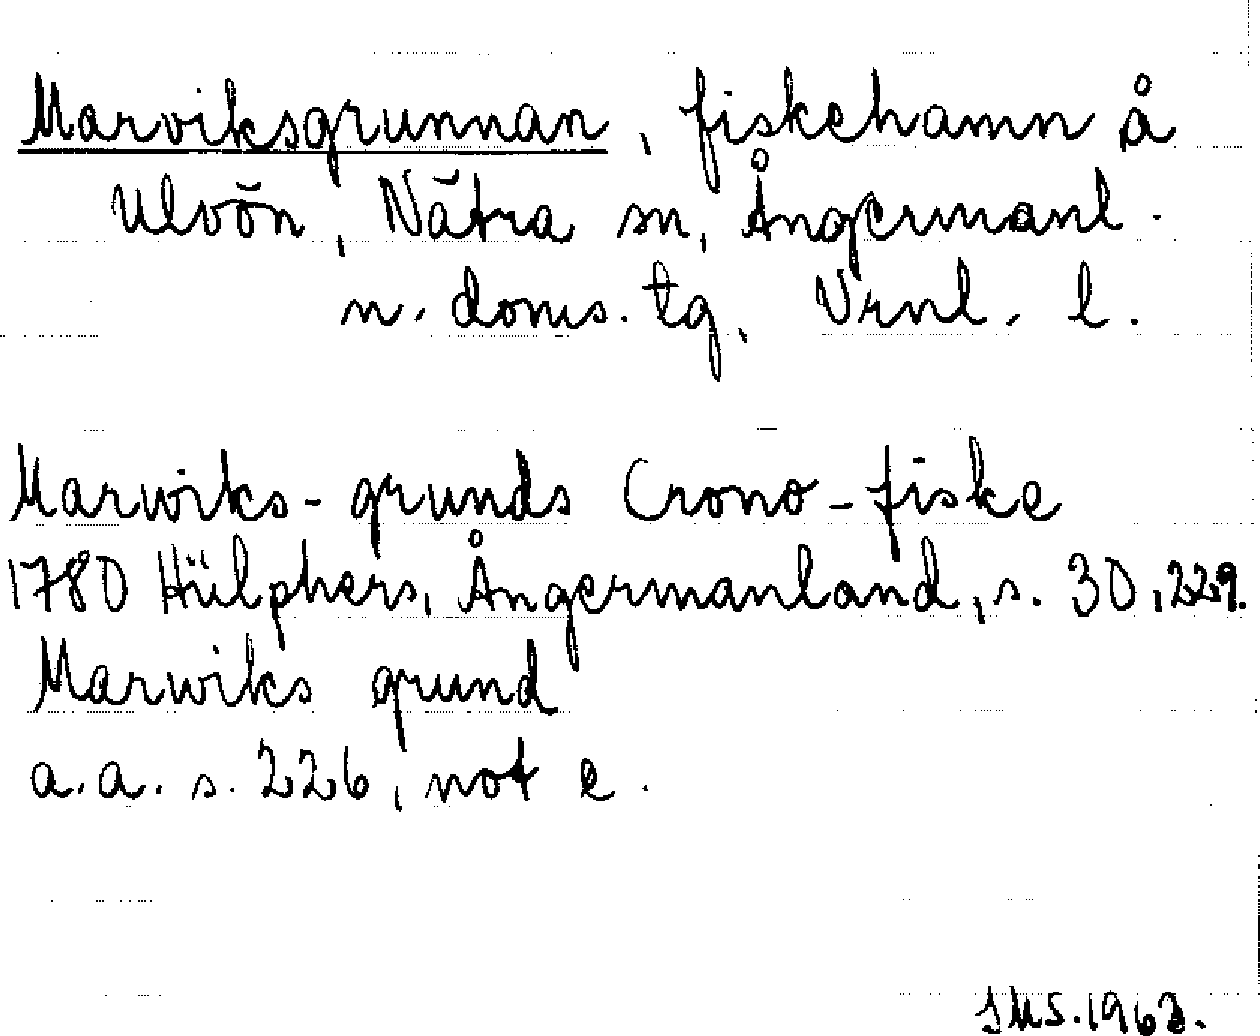 Marviksgrunnan, fiskehamn å
Ulvön, Nätra sn, Ångermanl.
n. doms. tg, Vrnl. l.
Marwiks-grunds Crono-fiske
1780 Hülphers, Ångermanland, s. 30, 229.
Marwiks grund
a.a. s. 226, not e.
SMS. 1963.